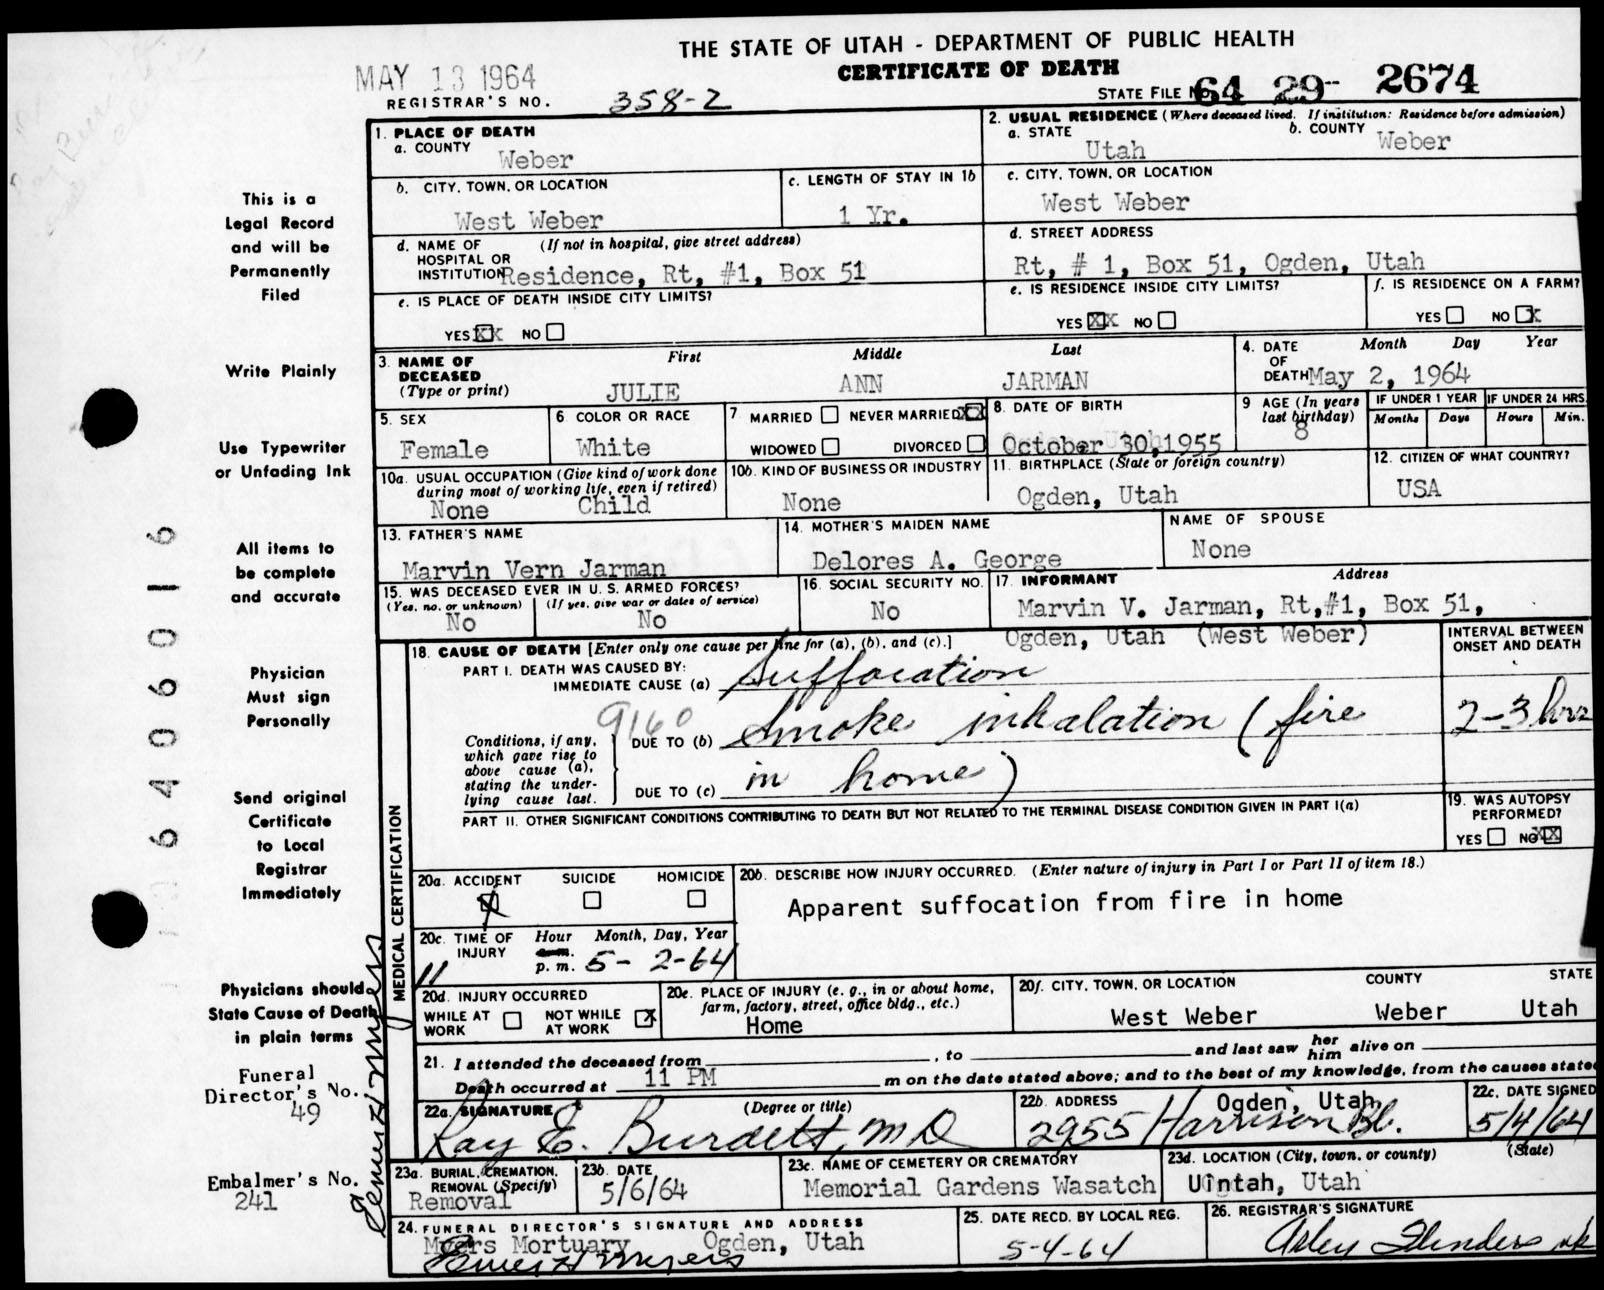 THE STATE OF UTAH - DEPARTMENT OF PUBLIC HEALTH
CERTIFICATE OF DEATH
MAY 13 1964
REGISTRAR'S NO. 358-2
STATE FILE NO. 64 29- 2674
This is a
Legal Record
and will be
Permanently
Filed
Write Plainly
Use Typewriter
or Unfading Ink
All items to
be complete
and accurate
Physician
Must sign
Personally
Send original
Certificate
to Local
Registrar
Immediately
Physicians should
State Cause of Death
in plain terms
Funeral
Director's No.
49
Embalmer's No.
241
6406016
1. PLACE OF DEATH
a. COUNTY Weber
2. USUAL RESIDENCE (Where deceased lived. If institution: Residence before admission)
a. STATE Utah b. COUNTY Weber
b. CITY, TOWN, OR LOCATION West Weber
c. LENGTH OF STAY IN 1b 1 Yr.
c. CITY, TOWN, OR LOCATION West Weber
d. NAME OF HOSPITAL OR INSTITUTION (If not in hospital, give street address) Residence, Rt, #1, Box 51
d. STREET ADDRESS Rt, # 1, Box 51, Ogden, Utah
e. IS PLACE OF DEATH INSIDE CITY LIMITS? YES XX NO
e. IS RESIDENCE INSIDE CITY LIMITS? YES XX NO
f. IS RESIDENCE ON A FARM? YES NO X
3. NAME OF DECEASED (Type or print) First Middle Last
JULIE ANN JARMAN
4. DATE OF DEATH Month Day Year
May 2, 1964
5. SEX Female
6 COLOR OR RACE White
7 MARRIED NEVER MARRIED XX WIDOWED DIVORCED
8. DATE OF BIRTH October 30,1955
9 AGE (In years last birthday) 8
IF UNDER 1 YEAR Months Days
IF UNDER 24 HRS. Hours Min.
10a. USUAL OCCUPATION (Give kind of work done during most of working life, even if retired) None Child
10b. KIND OF BUSINESS OR INDUSTRY None
11. BIRTHPLACE (State or foreign country) Ogden, Utah
12. CITIZEN OF WHAT COUNTRY? USA
13. FATHER'S NAME Marvin Vern Jarman
14. MOTHER'S MAIDEN NAME Delores A. George
NAME OF SPOUSE None
15. WAS DECEASED EVER IN U. S. ARMED FORCES?
(Yes, no, or unknown) No (If yes, give war or dates of service) No
16. SOCIAL SECURITY NO. No
17. INFORMANT Address
Marvin V. Jarman, Rt,#1, Box 51,
Ogden, Utah (West Weber)
MEDICAL CERTIFICATION
18. CAUSE OF DEATH [Enter only one cause per line for (a), (b), and (c).]
INTERVAL BETWEEN ONSET AND DEATH
PART I. DEATH WAS CAUSED BY:
IMMEDIATE CAUSE (a) Suffocation
9160
Conditions, if any, which gave rise to above cause (a), stating the underlying cause last.
DUE TO (b) Smoke inhalation (fire 2-3 hrs
DUE TO (c) in home)
PART II. OTHER SIGNIFICANT CONDITIONS CONTRIBUTING TO DEATH BUT NOT RELATED TO THE TERMINAL DISEASE CONDITION GIVEN IN PART I(a)
19. WAS AUTOPSY PERFORMED? YES NO XX
20a. ACCIDENT X SUICIDE HOMICIDE
20b. DESCRIBE HOW INJURY OCCURRED. (Enter nature of injury in Part I or Part II of item 18.)
Apparent suffocation from fire in home
20c. TIME OF INJURY Hour Month, Day, Year
11 a.m. p. m. 5- 2-64
20d. INJURY OCCURRED WHILE AT WORK NOT WHILE AT WORK X
20e. PLACE OF INJURY (e. g., in or about home, farm, factory, street, office bldg., etc.)
Home
20f. CITY, TOWN, OR LOCATION COUNTY STATE
West Weber Weber Utah
21. I attended the deceased from , to and last saw her him alive on
Death occurred at 11 PM m on the date stated above; and to the best of my knowledge, from the causes stated
22a. SIGNATURE (Degree or title)
Ray E. Burdett, MD
22b. ADDRESS Ogden, Utah
2955 Harrison Bl.
22c. DATE SIGNED 5/4/64
23a. BURIAL, CREMATION, REMOVAL (Specify) Removal
23b. DATE 5/6/64
23c. NAME OF CEMETERY OR CREMATORY Memorial Gardens Wasatch
23d. LOCATION (City, town, or county) (State)
Uintah, Utah
24. FUNERAL DIRECTOR'S SIGNATURE AND ADDRESS
Myers Mortuary Ogden, Utah
25. DATE RECD. BY LOCAL REG. 5-4-64
26. REGISTRAR'S SIGNATURE